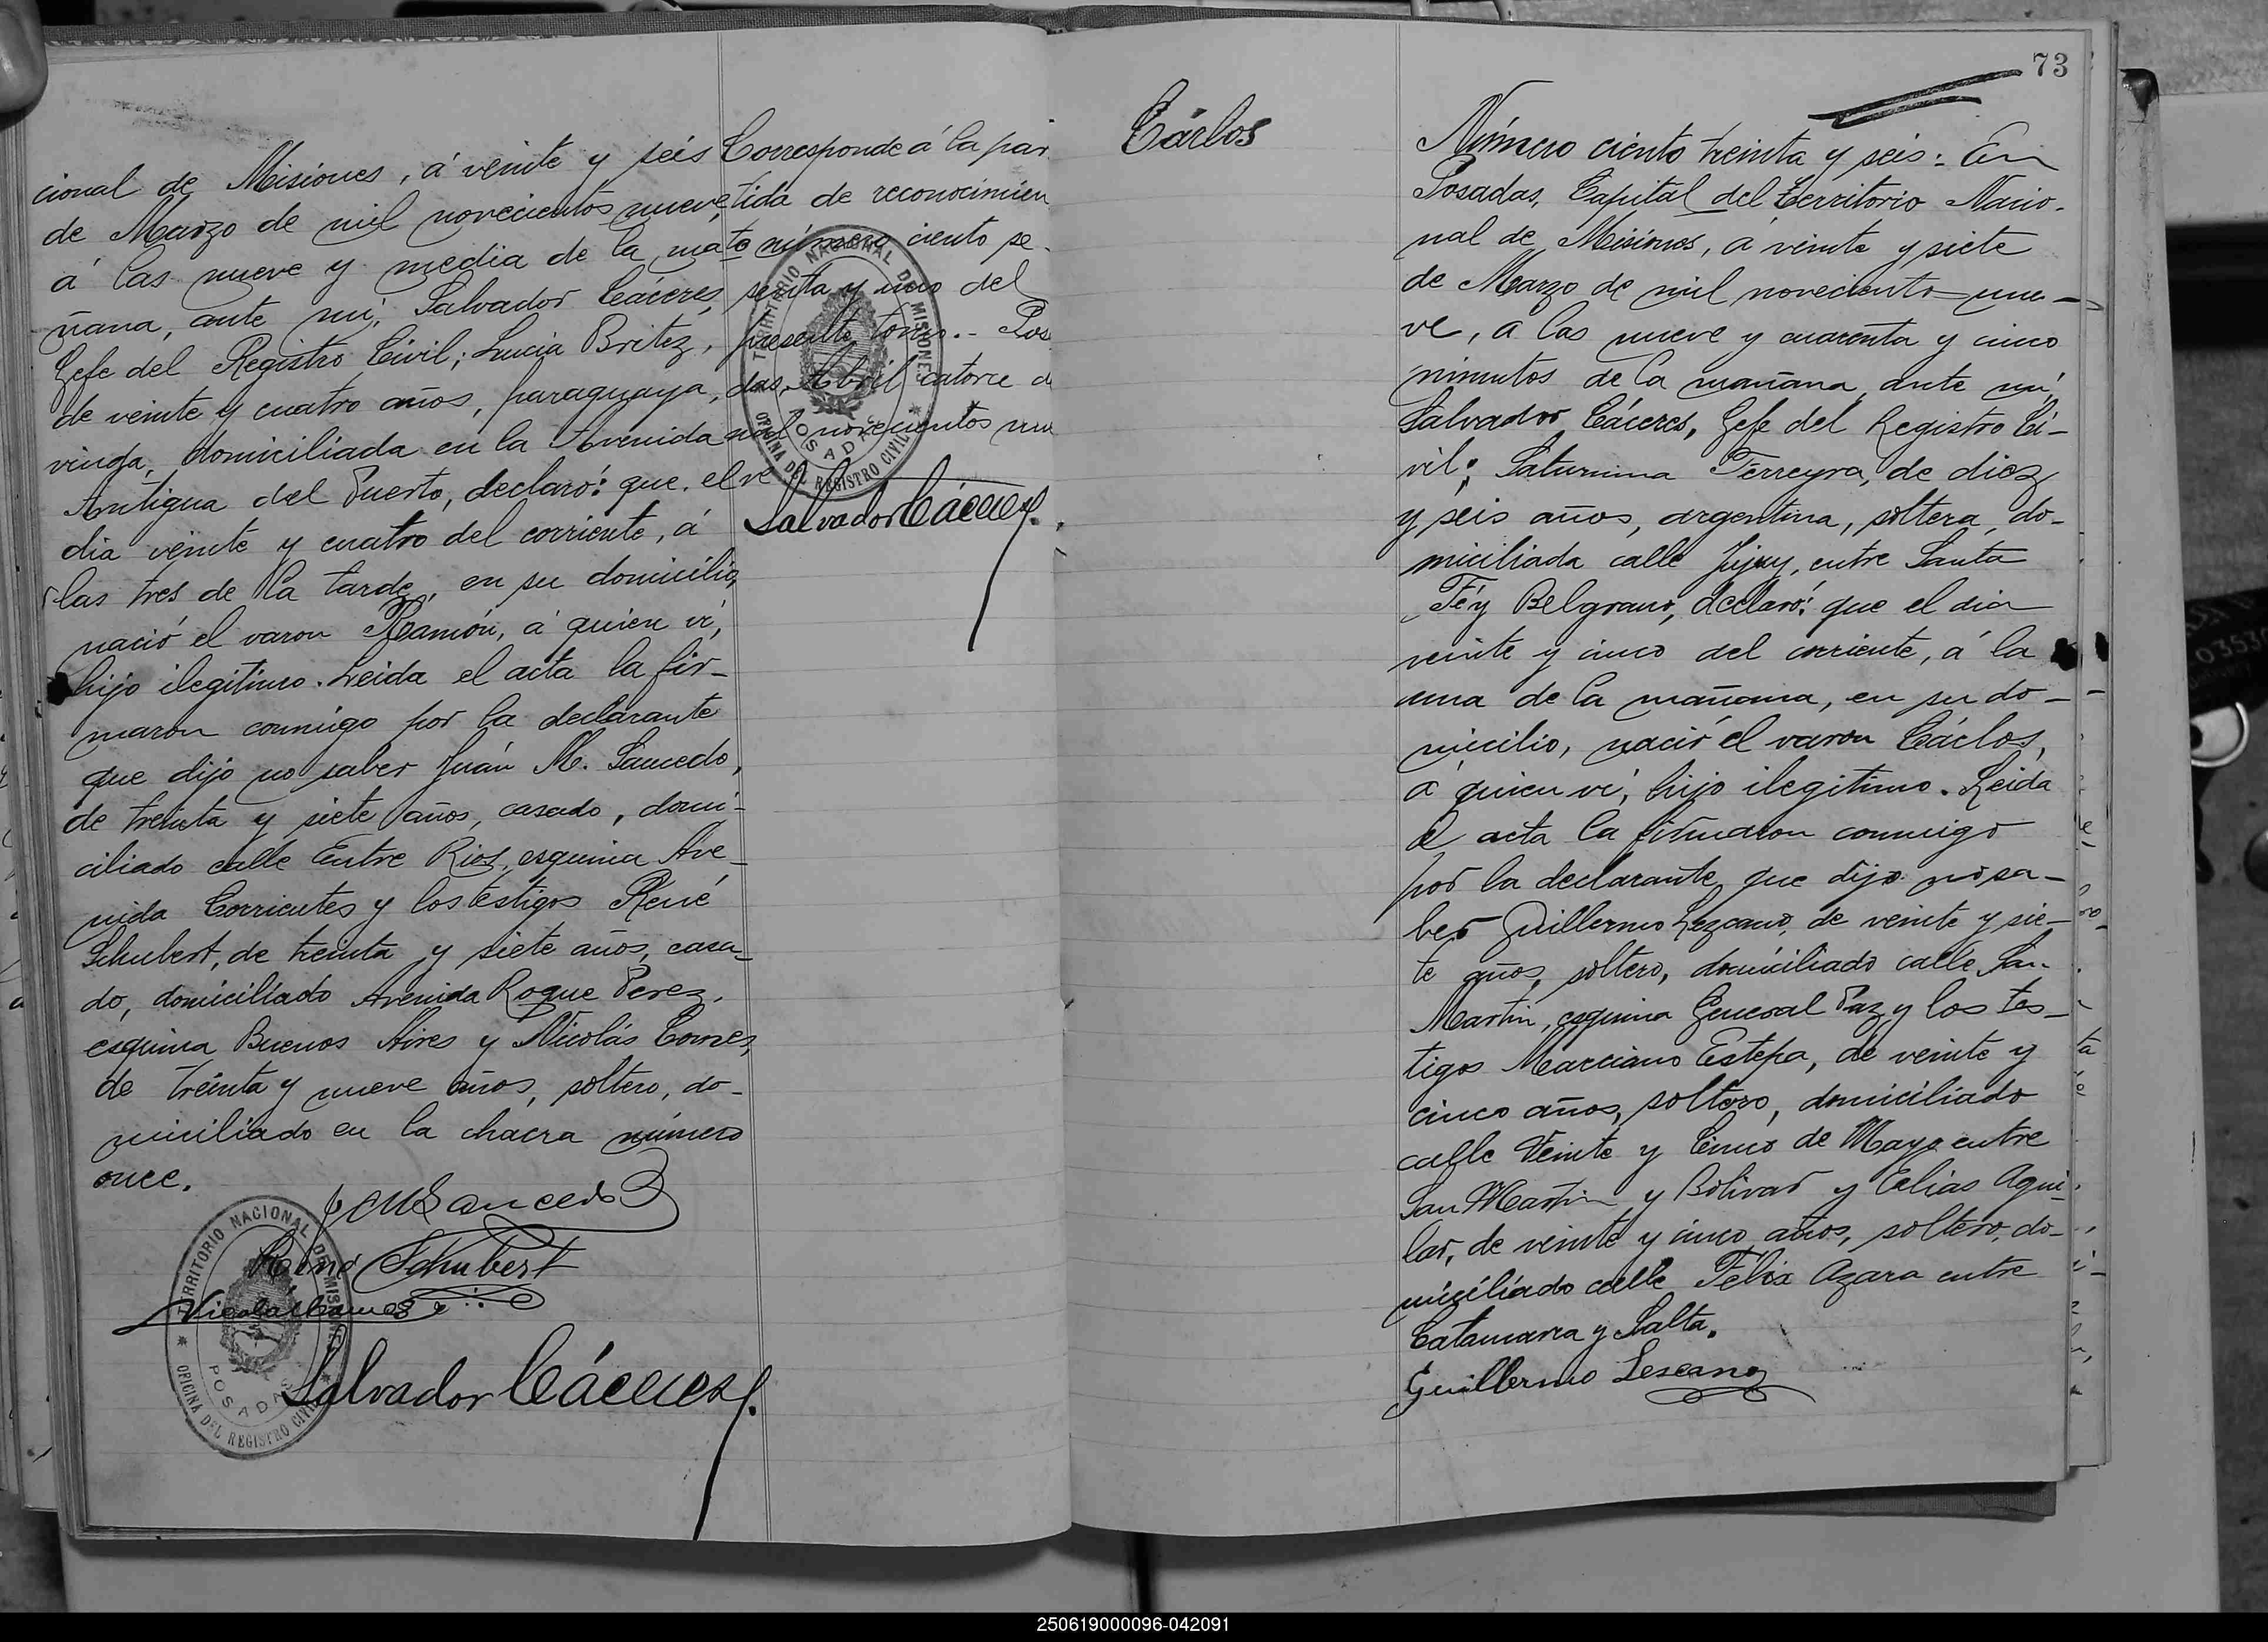 cional de Misiones, á veinte y seis
de Marzo de mil novecientos nueve,
á las nueve y media de la ma
ñana, ante mí, Salvador Cáceres,
Gefe del Registro Civil; Lucia Britez,
de veinte y cuatro años, paraguaya,
viuda, domiciliada en la Avenida
Antigua del Puerto, declaró: que el
dia veinte y cuatro del corriente, á
las tres de la tarde, en su domicilio,
nació el varon Ramón, á quien ví,
hijo ilegitimo. Leida el acta la fir-
maron conmigo por la declarante
que dijo no saber Juán M. Saucedo,
de treinta y siete años, casado, domi-
ciliado calle Entre Rios, esquina Ave-
nida Corrientes y los testigos René
Schubert, de treinta y siete años, casa-
do, domiciliado Avenida Roque Perez,
esquina Buenos Aires y Nicolás Comes,
de treinta y nueve años, soltero, do-
miciliado en la chacra número
once.
J M Saucedo
René Schubert
Salvador Cáceres
TERRITORIO NACIONAL DE MISIONES
POSADAS
OFICINA DEL REGISTRO CIVIL
Corresponde á la par
tida de reconocimien
to número ciento se-
senta y uno del
presente tomo.- Pos
das, Abril catorce d
mil novecientos nue
ve
Salvador Cáceres
TERRITORIO NACIONAL DE MISIONES
POSADAS
OFICINA DEL REGISTRO CIVIL
73
Cárlos
Número ciento treinta y seis: En
Posadas, Capital del Territorio Nacio-
nal de Misiones, á veinte y siete
de Marzo de mil novecientos nue-
ve, a las nueve y cuarenta y cinco
minutos de la mañana, ante mí,
Salvador Cáceres, Gefe del Registro Ci-
vil; Saturnina Ferreyra, de diez
y seis años, argentina, soltera, do-
miciliada calle Jujuy, entre Santa
Fé y Belgrano, declaró: que el dia
veinte y cinco del corriente, á la
una de la mañana, en su do-
micilio, nació el varon Cárlos,
á quien ví, hijo ilegitimo. Leida
el acta la firmaron conmigo
por la declarante que dijo no sa-
ber Guillermo Lezcano, de veinte y sie-
te años, soltero, domiciliado calle San
Martin, esquina General Paz y los tes-
tigos Marciano Estepa, de veinte y
cinco años, soltero, domiciliado
calle Veinte y Cinco de Mayo entre
San Martin y Bolivar y Elias Agui-
lar, de veinte y cinco años, soltero, do-
miciliado calle Félix Azara entre
Catamarca y Salta.
Guillermo Lescano
250619000096-042091